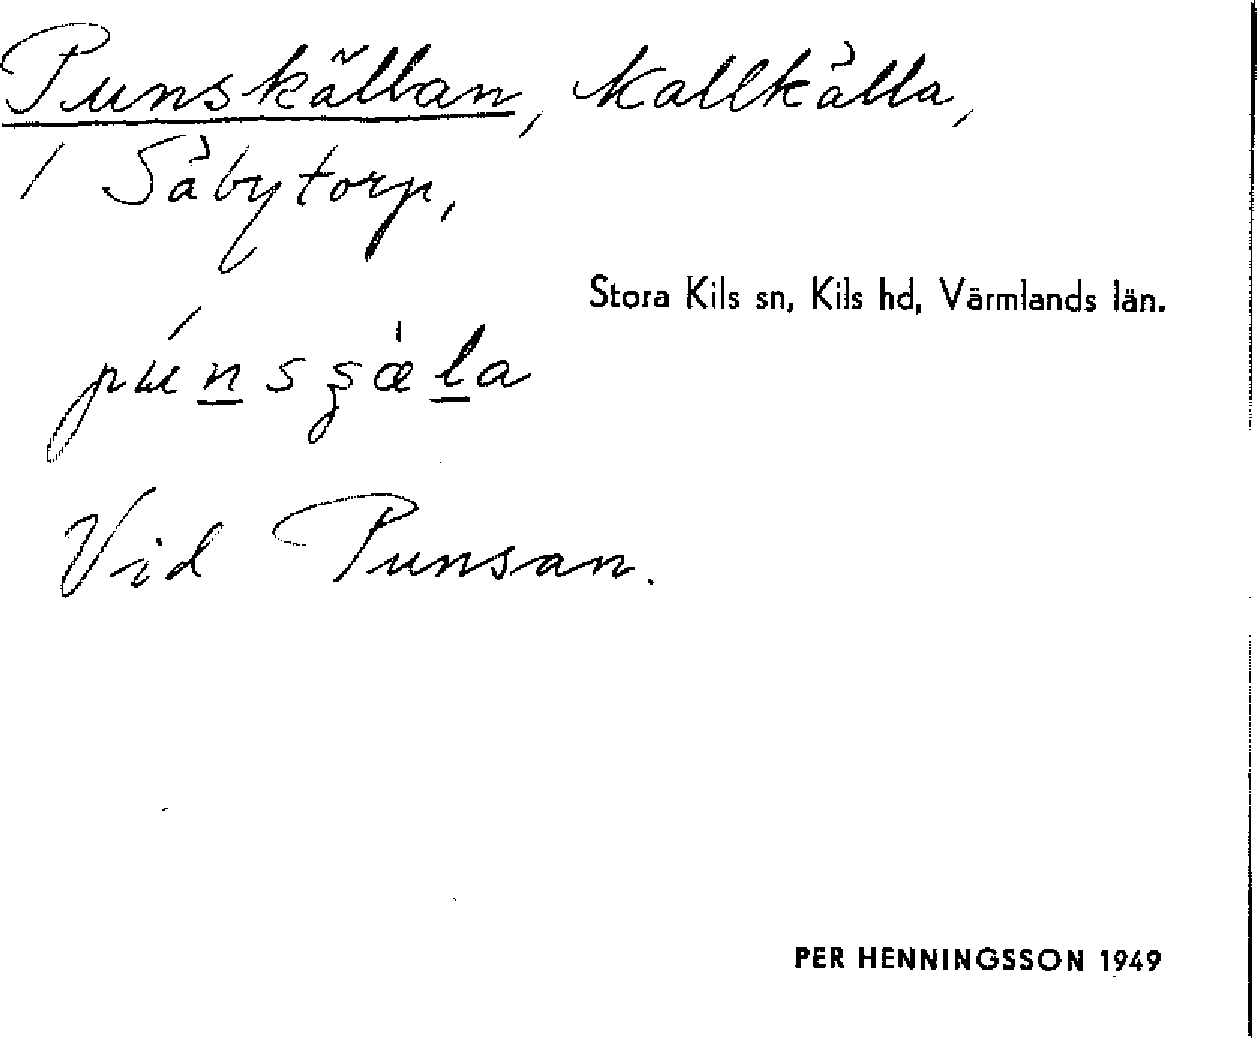 Punskällan, kallkälla,
/ Säbytorp,
Stora Kils sn, Kils hd, Värmlands län.
Vid Punsan.
PER HENNINGSSON 1949